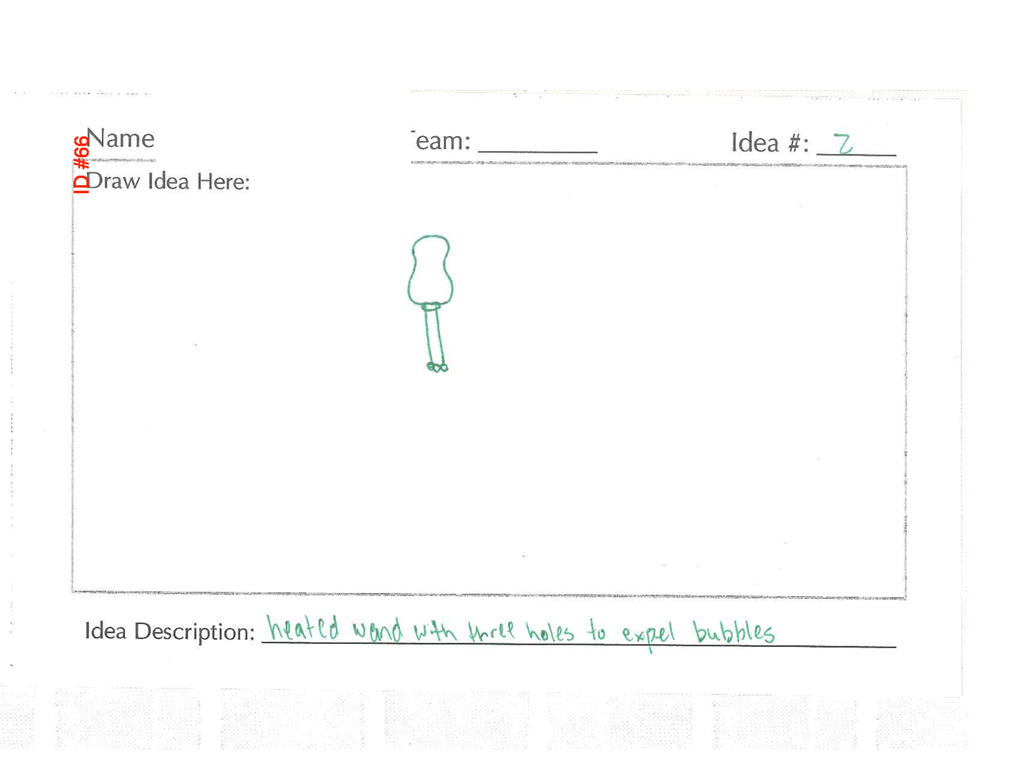 Name eam: Idea #: 2
ID #66
Draw Idea Here:
Idea Description: heated wand with three holes to expel bubbles